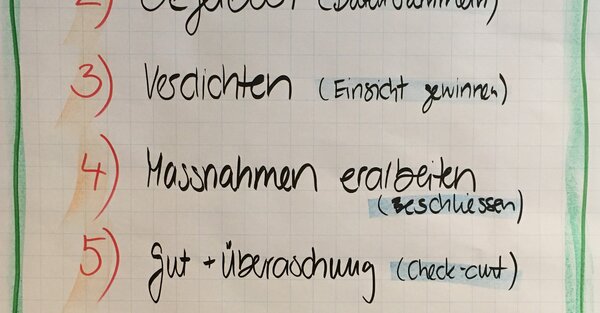 2)
3) Verdichten (Einsicht gewinnen)
4) Massnahmen eralbeiten
(Beschliessen)
5) gut + Überaschung (Check-out)